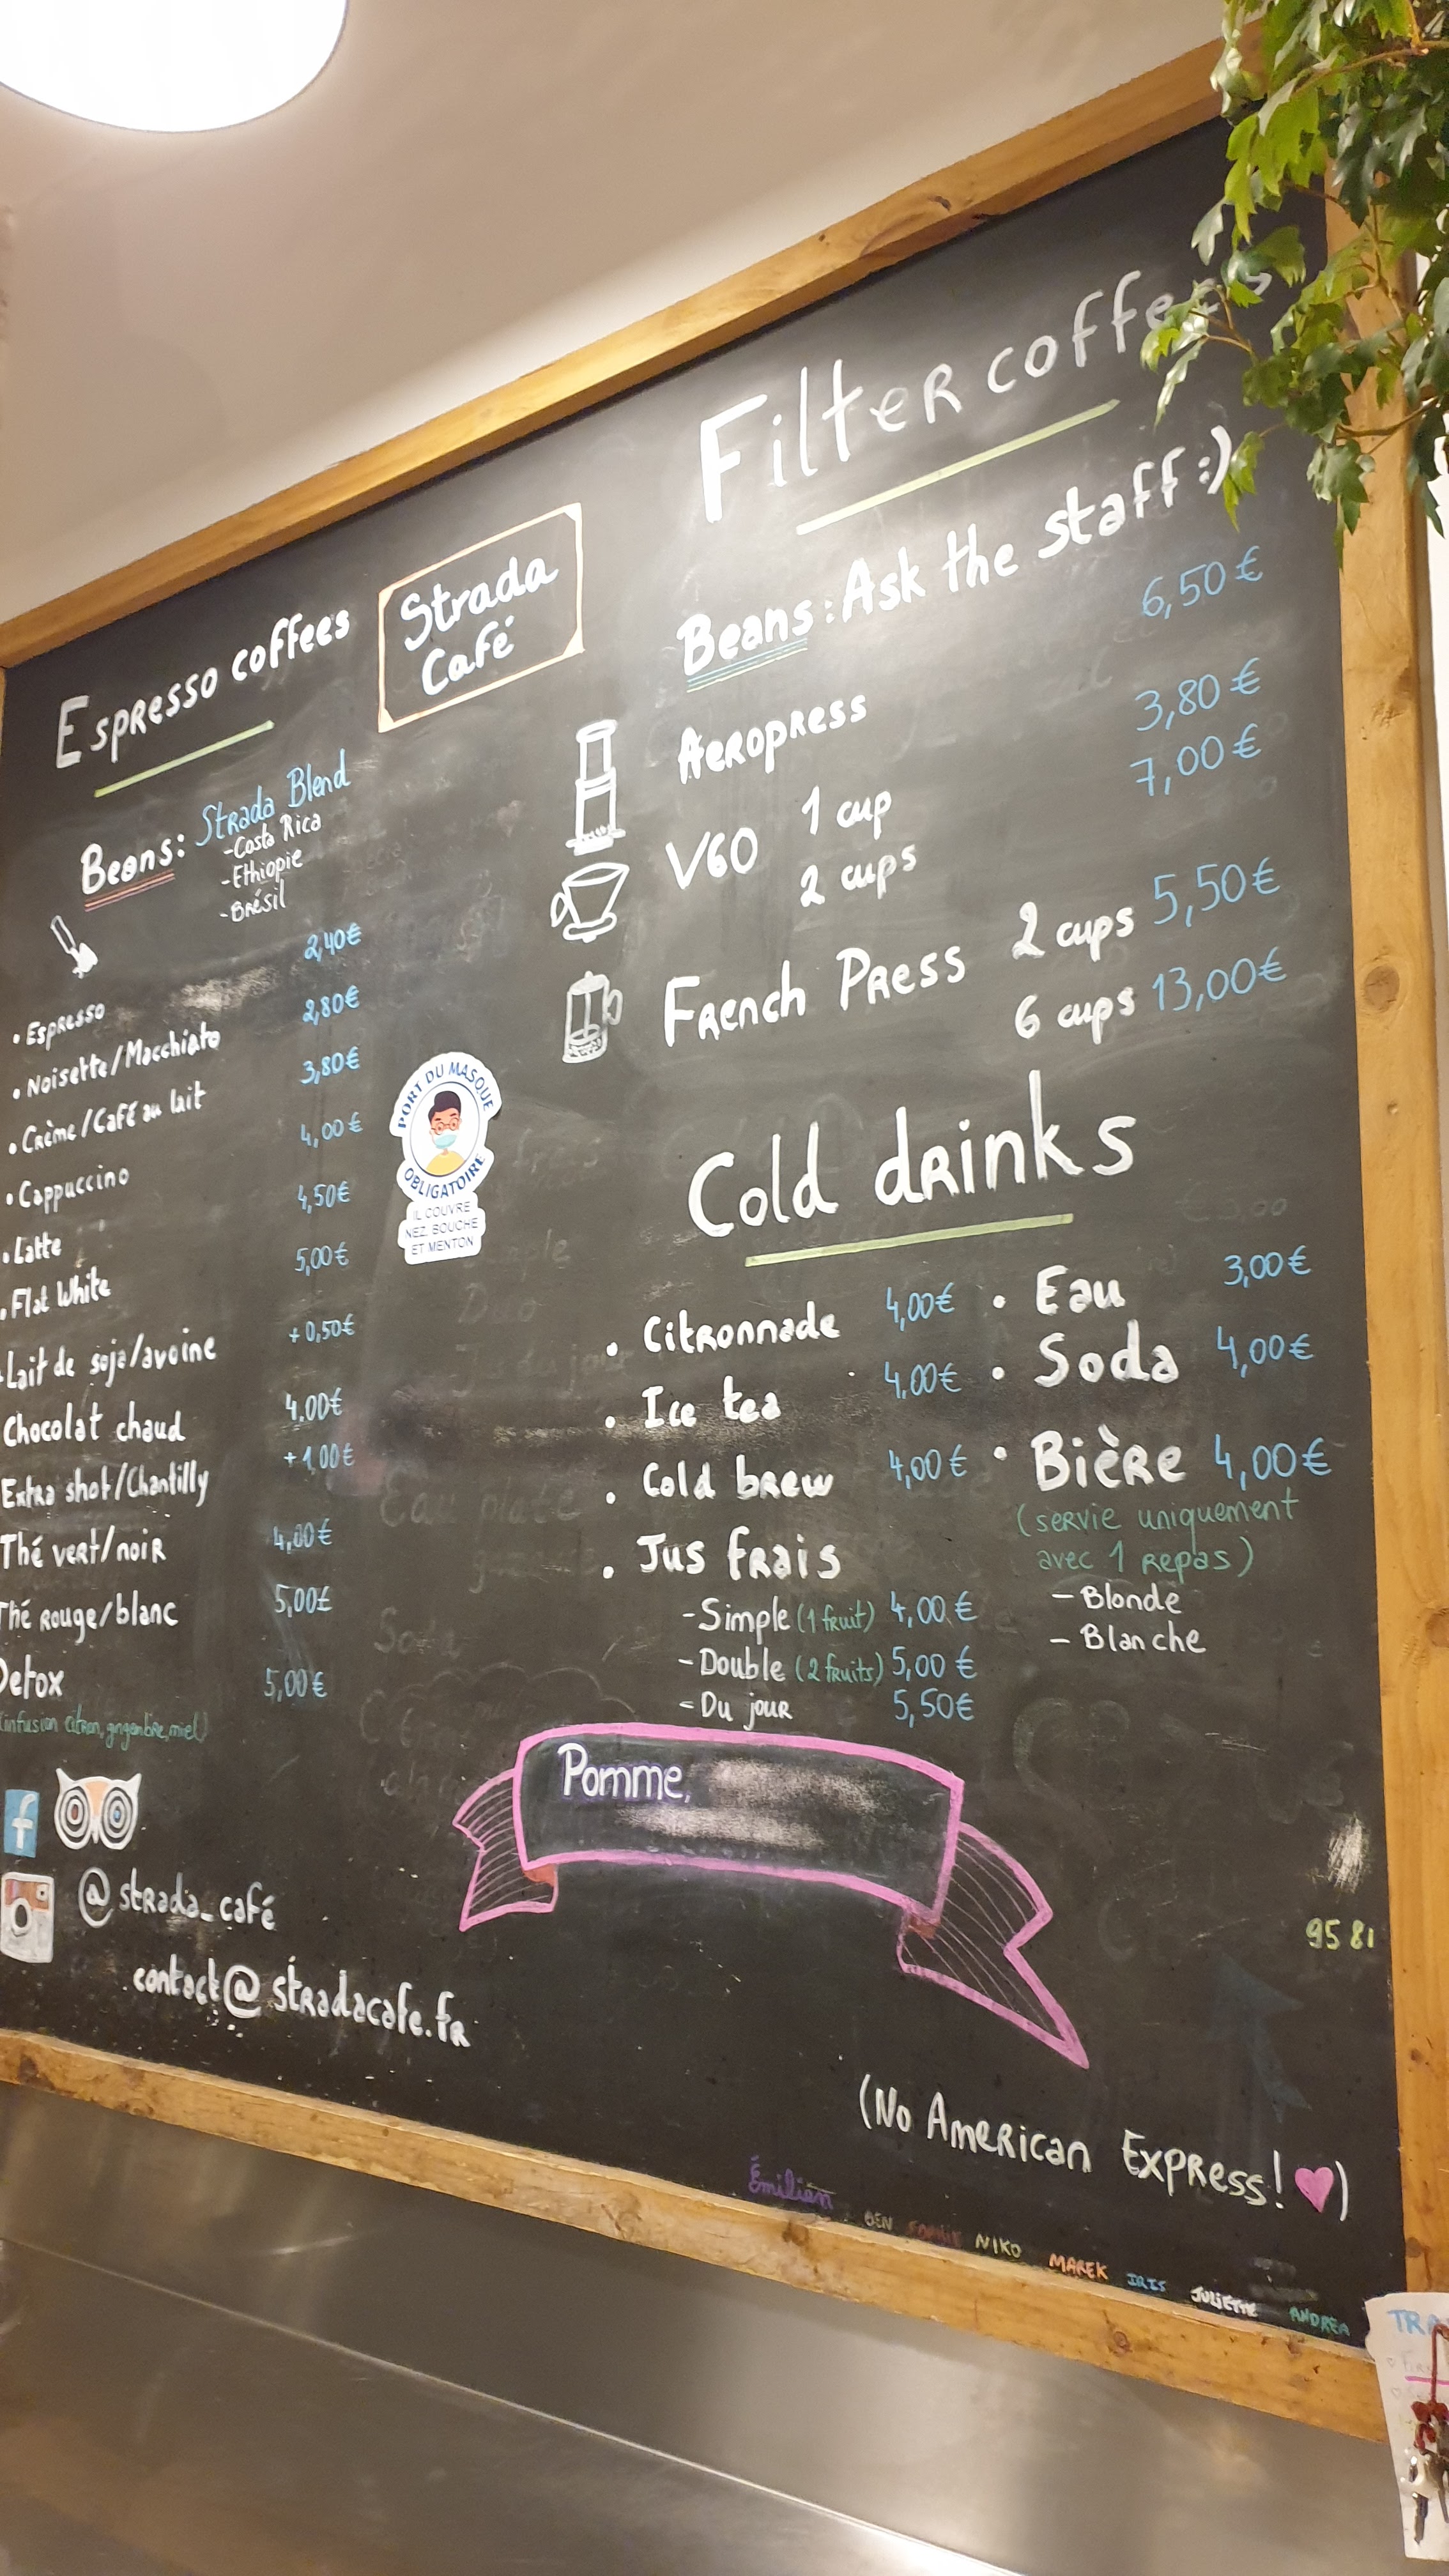 Strada
Café
Espresso coffees
Beans: Strada Blend
-Costa Rica
-Ethiopie
-Brésil
• Espresso 2,40€
• Noisette/Macchiato 2,80€
• Crème/Café au lait 3,80€
• Cappuccino 4,00€
• Latte 4,50€
• Flat White 5,00€
Lait de soja/avoine +0,50€
Chocolat chaud 4,00€
Extra shot/Chantilly +1,00€
Thé vert/noir 4,00€
Thé Rouge/blanc 5,00£
Detox 5,00€
(infusion citron, gingembre, miel)
f
@strada_café
contact@stradacafe.fr
PORT DU MASQUE
OBLIGATOIRE
IL COUVRE
NEZ, BOUCHE
ET MENTON
Filter coffees
Beans: Ask the staff :)
Aeropress 6,50€
V60 1 cup 3,80€
2 cups 7,00€
French Press 2 cups 5,50€
6 cups 13,00€
Cold drinks
• Citronnade 4,00€
• Ice tea 4,00€
• Cold brew 4,00€
• Jus frais
-Simple (1 fruit) 4,00€
-Double (2 fruits) 5,00€
-Du jour 5,50€
• Eau 3,00€
• Soda 4,00€
• Bière 4,00€
(servie uniquement
avec 1 repas)
- Blonde
- Blanche
Pomme,
95 81
(No American Express! ♥)
Émilien BEN NIKO MAREK IRIS JULIETTE ANDREA